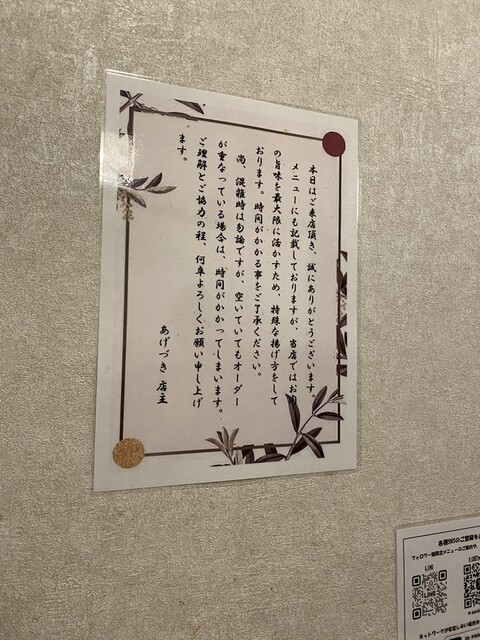 本日はご来店頂き、誠にありがとうございます。
メニューにも記載しておりますが、当店ではお肉
の旨味を最大限に活かすため、特殊な揚げ方をして
おります。時間がかかる事をご了承ください。
尚、混雑時は勿論ですが、空いていてもオーダー
が重なっている場合は、時間がかかってしまいます。
ご理解とご協力の程、何卒よろしくお願い申し上げ
ます。
あげづき 店主
各種SNSのご登録を
フォロワー様限定メニューのご案内や、
LINE
LINE